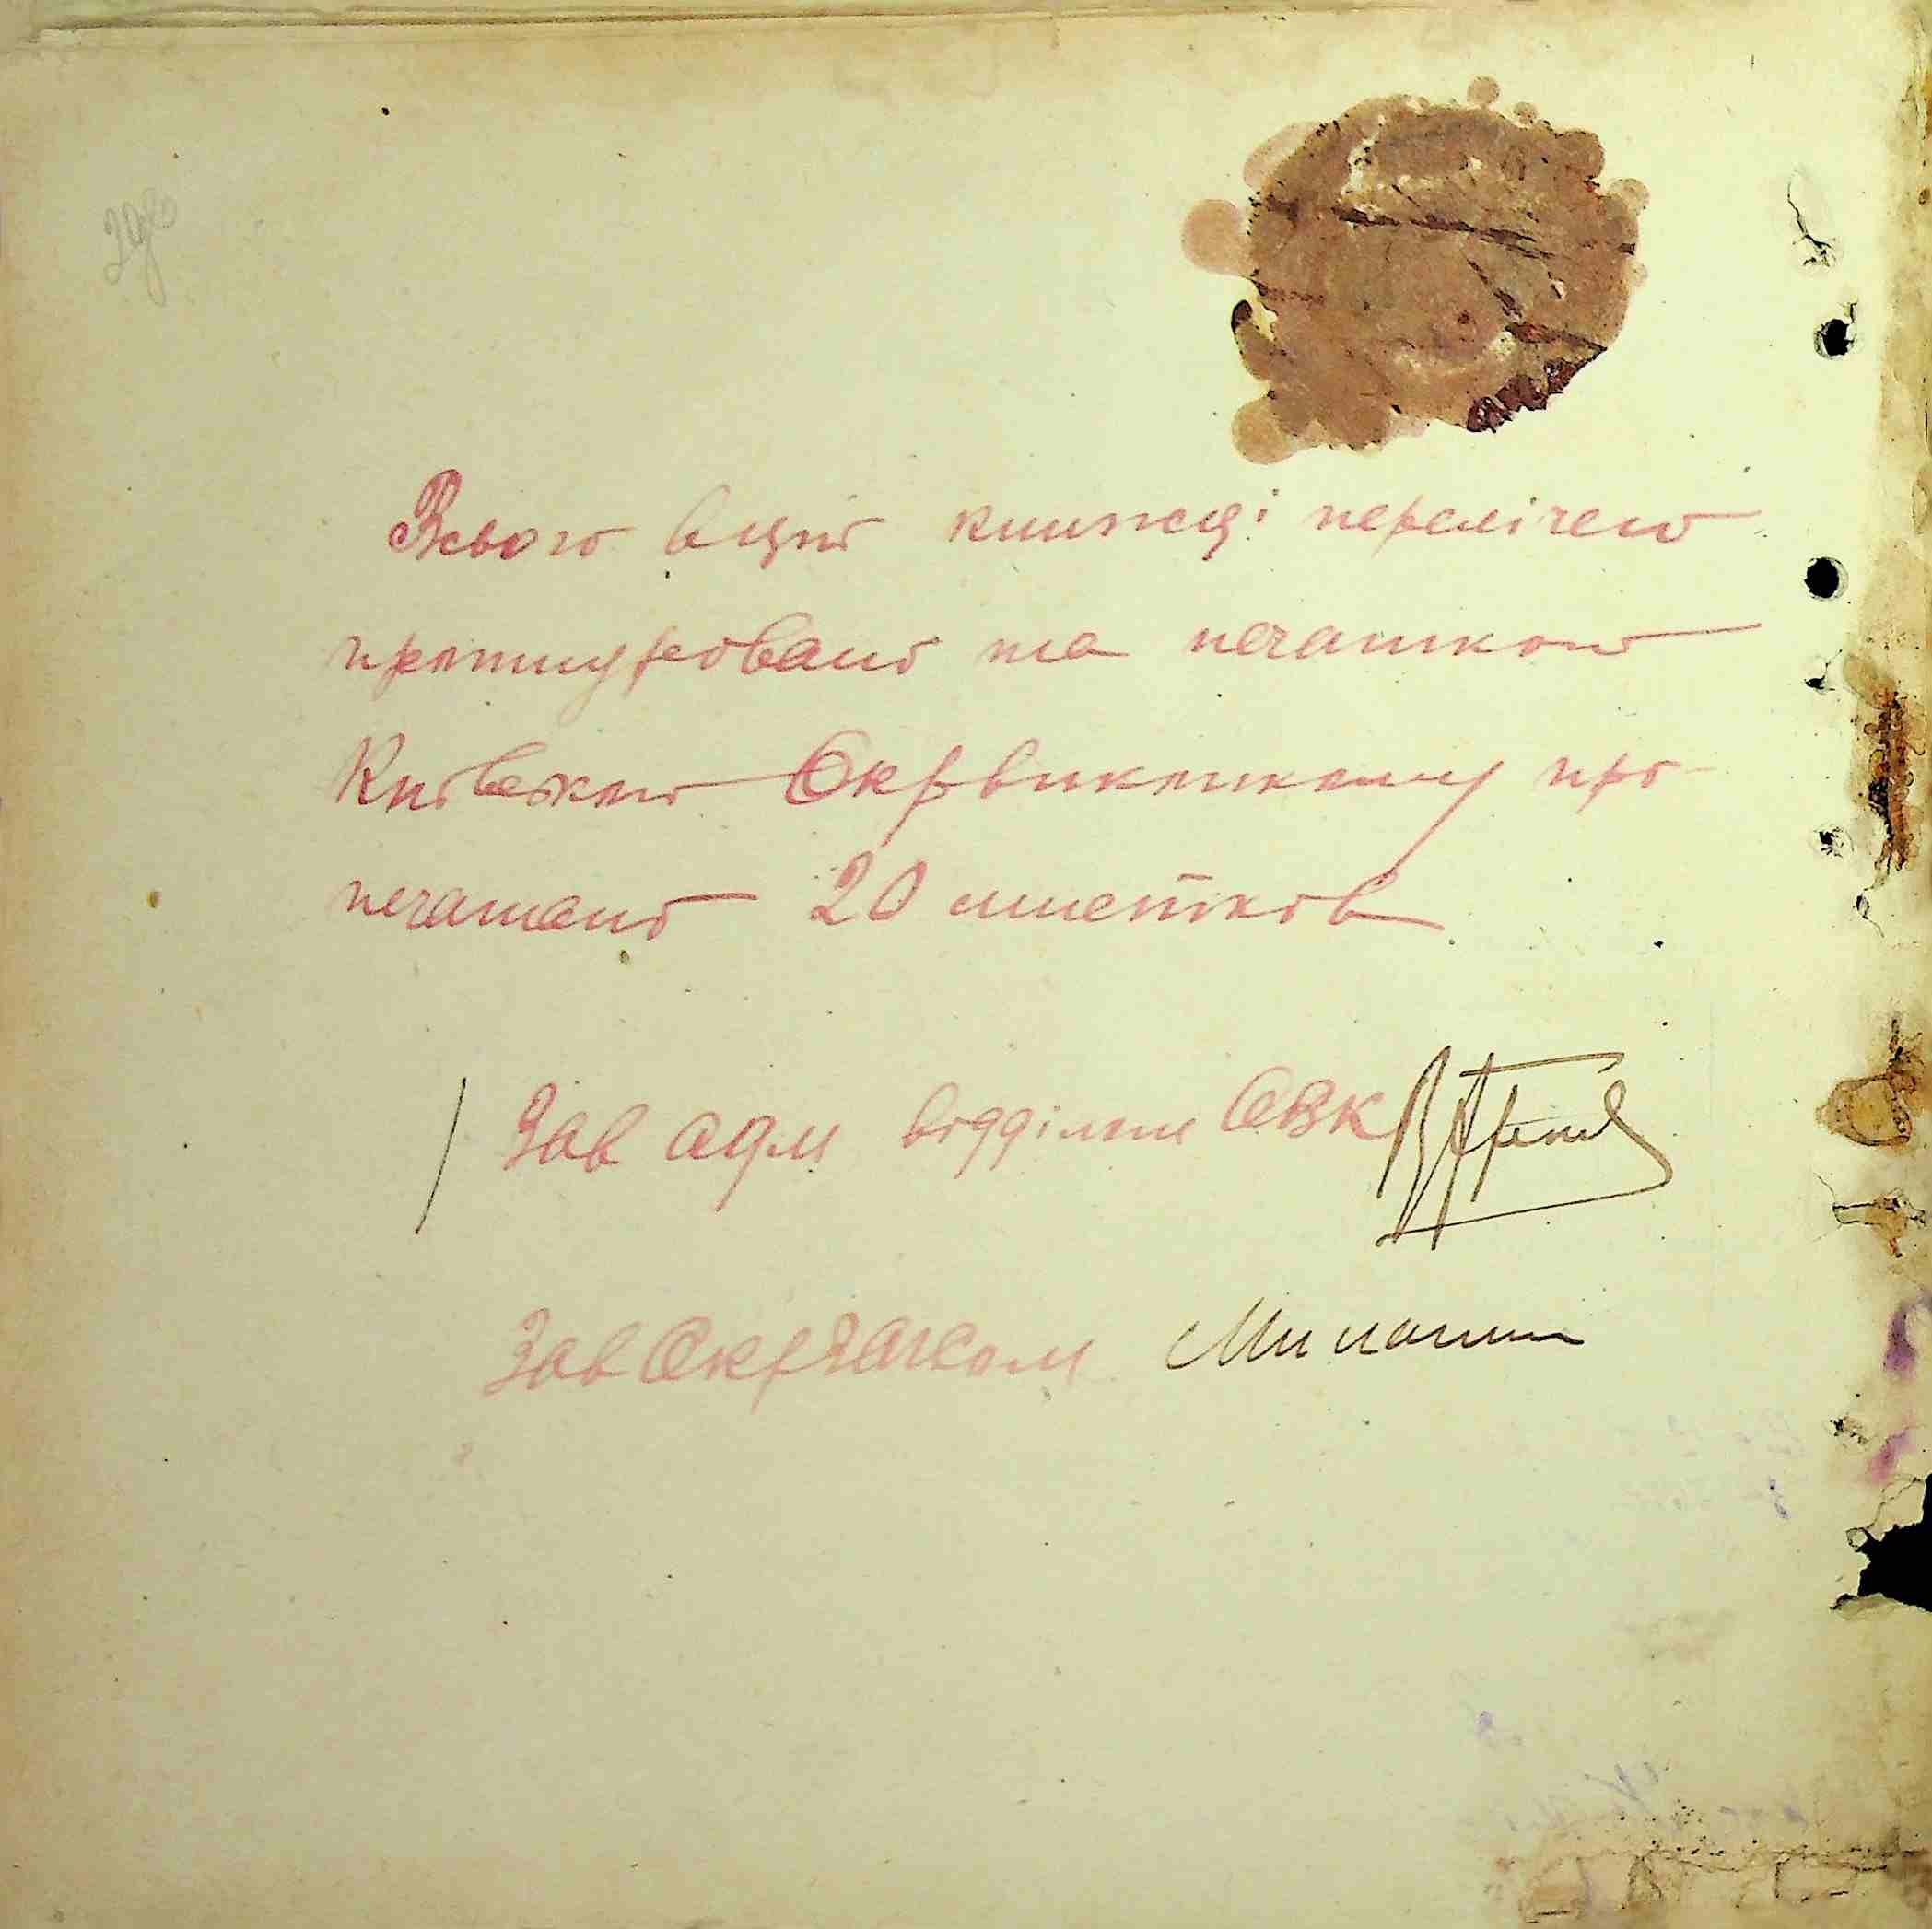 Всього в цій книжці перелічено
прошнуровано та печаткою
Київського Окрвиконкому про-
печатано 20 листков
Зав адм відділом ОВК
Зав Окрзагсом